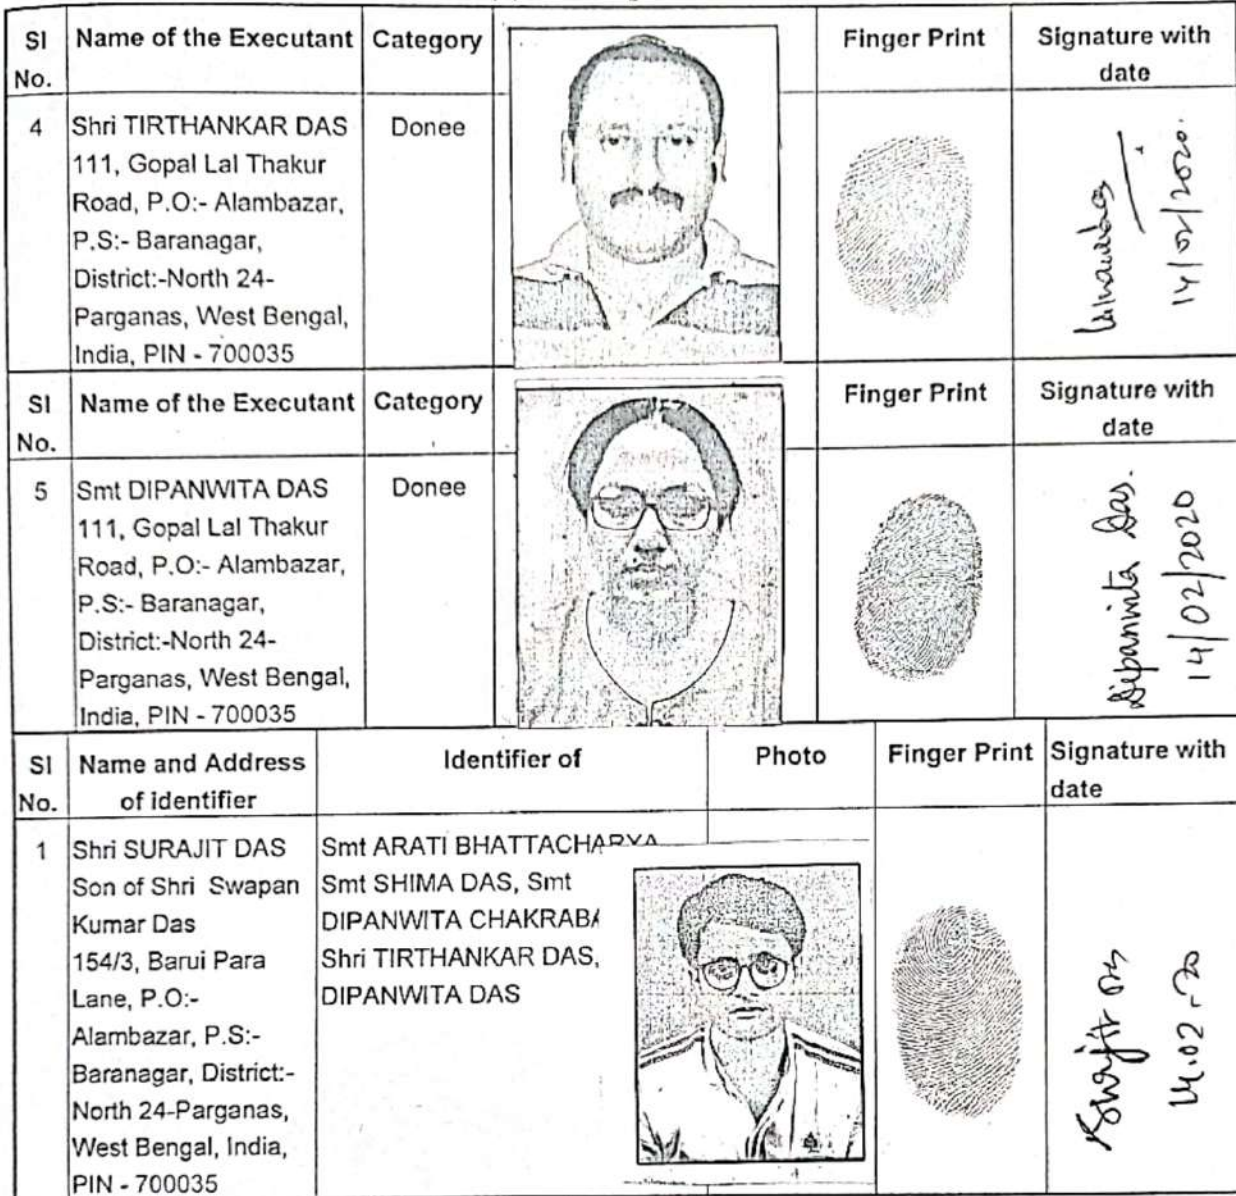 Sl No. Name of the Executant Category Finger Print Signature with date
4 Shri TIRTHANKAR DAS Donee
111, Gopal Lal Thakur
Road, P.O:- Alambazar,
P.S:- Baranagar,
District:-North 24-
Parganas, West Bengal,
India, PIN - 700035
14/02/2020.
Sl No. Name of the Executant Category Finger Print Signature with date
5 Smt DIPANWITA DAS Donee
111, Gopal Lal Thakur
Road, P.O:- Alambazar,
P.S:- Baranagar,
District:-North 24-
Parganas, West Bengal,
India, PIN - 700035
Dipanwita Das.
14/02/2020
Sl No. Name and Address of identifier Identifier of Photo Finger Print Signature with date
1 Shri SURAJIT DAS
Son of Shri Swapan
Kumar Das
154/3, Barui Para
Lane, P.O:-
Alambazar, P.S:-
Baranagar, District:-
North 24-Parganas,
West Bengal, India,
PIN - 700035
Smt ARATI BHATTACHARYA
Smt SHIMA DAS, Smt
DIPANWITA CHAKRABA
Shri TIRTHANKAR DAS,
DIPANWITA DAS
Surajit Das
14.02.20